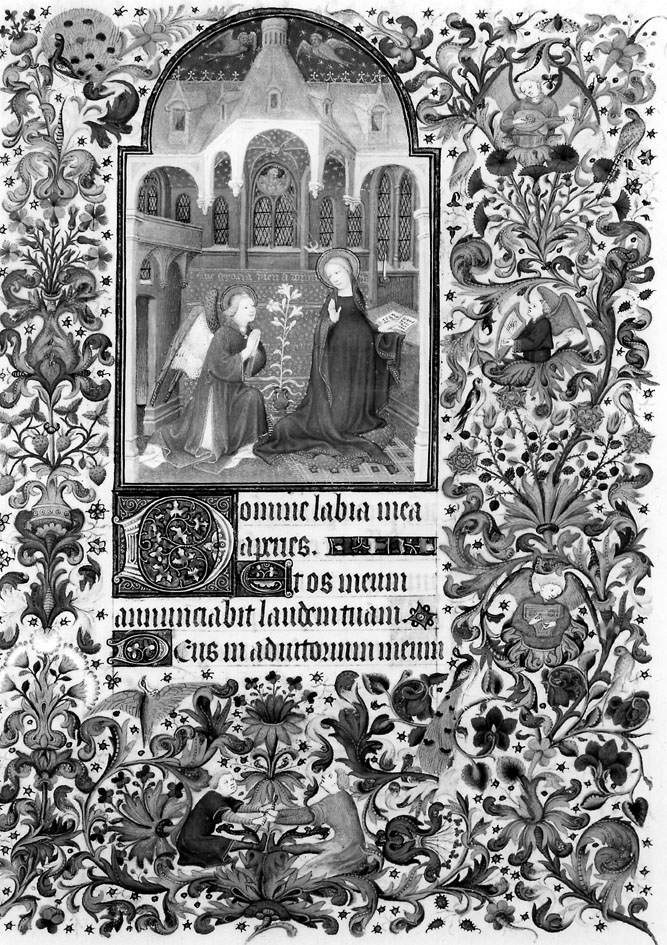 aue gracia
Domine labia mea
aperies.
Et os meum
annunciabit laudem tuam.
Deus in adiutorium meum